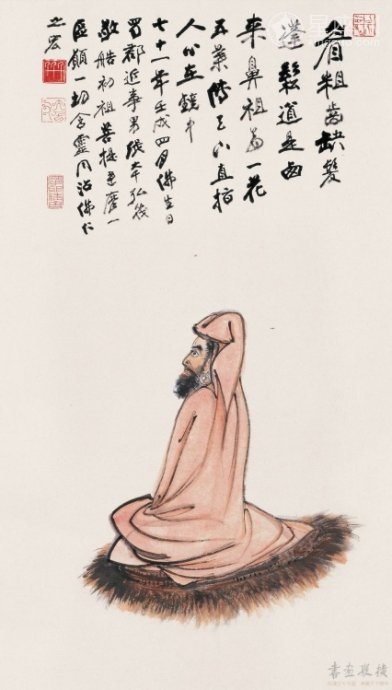 眉粗齒缺髮
蓬鬆道是西
來鼻祖翁一花
五葉傳天下直指
人心在鏡中
七十一年壬戌四月佛生日
蜀郡近事男張大千弘筏
敬艁初祖菩提達磨一
區願一切含靈同沾佛仁
之宏